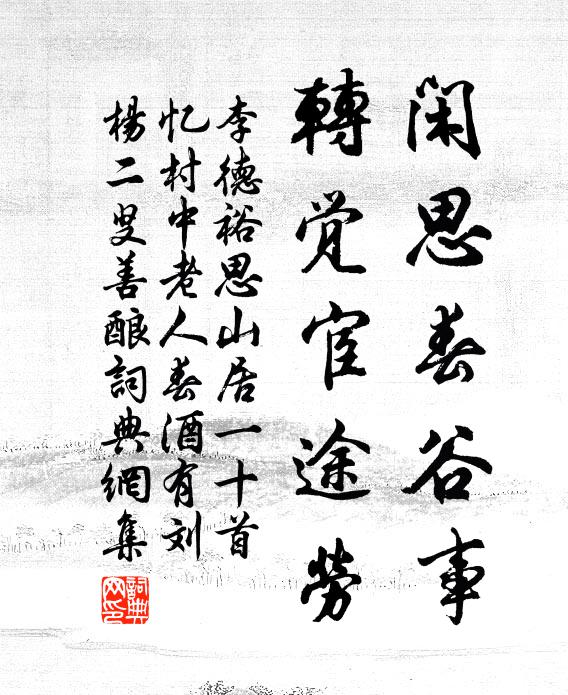 闲思春谷事
轉觉宦途勞
李德裕思山居一十首
忆村中老人春酒有刘
楊二叟善酿詞典網集
詞典
网印